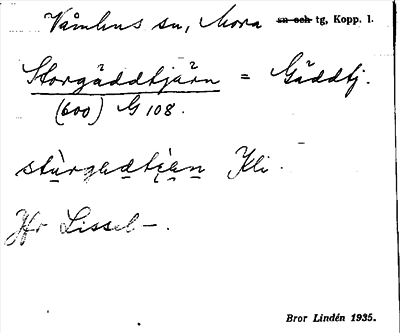 Våmhus sn, Mora sn och tg, Kopp. l.
Storgäddtjärn = Gäddtj.
(600) G 108.
Kli.
Jfr Lissel-.
Bror Lindén 1935.